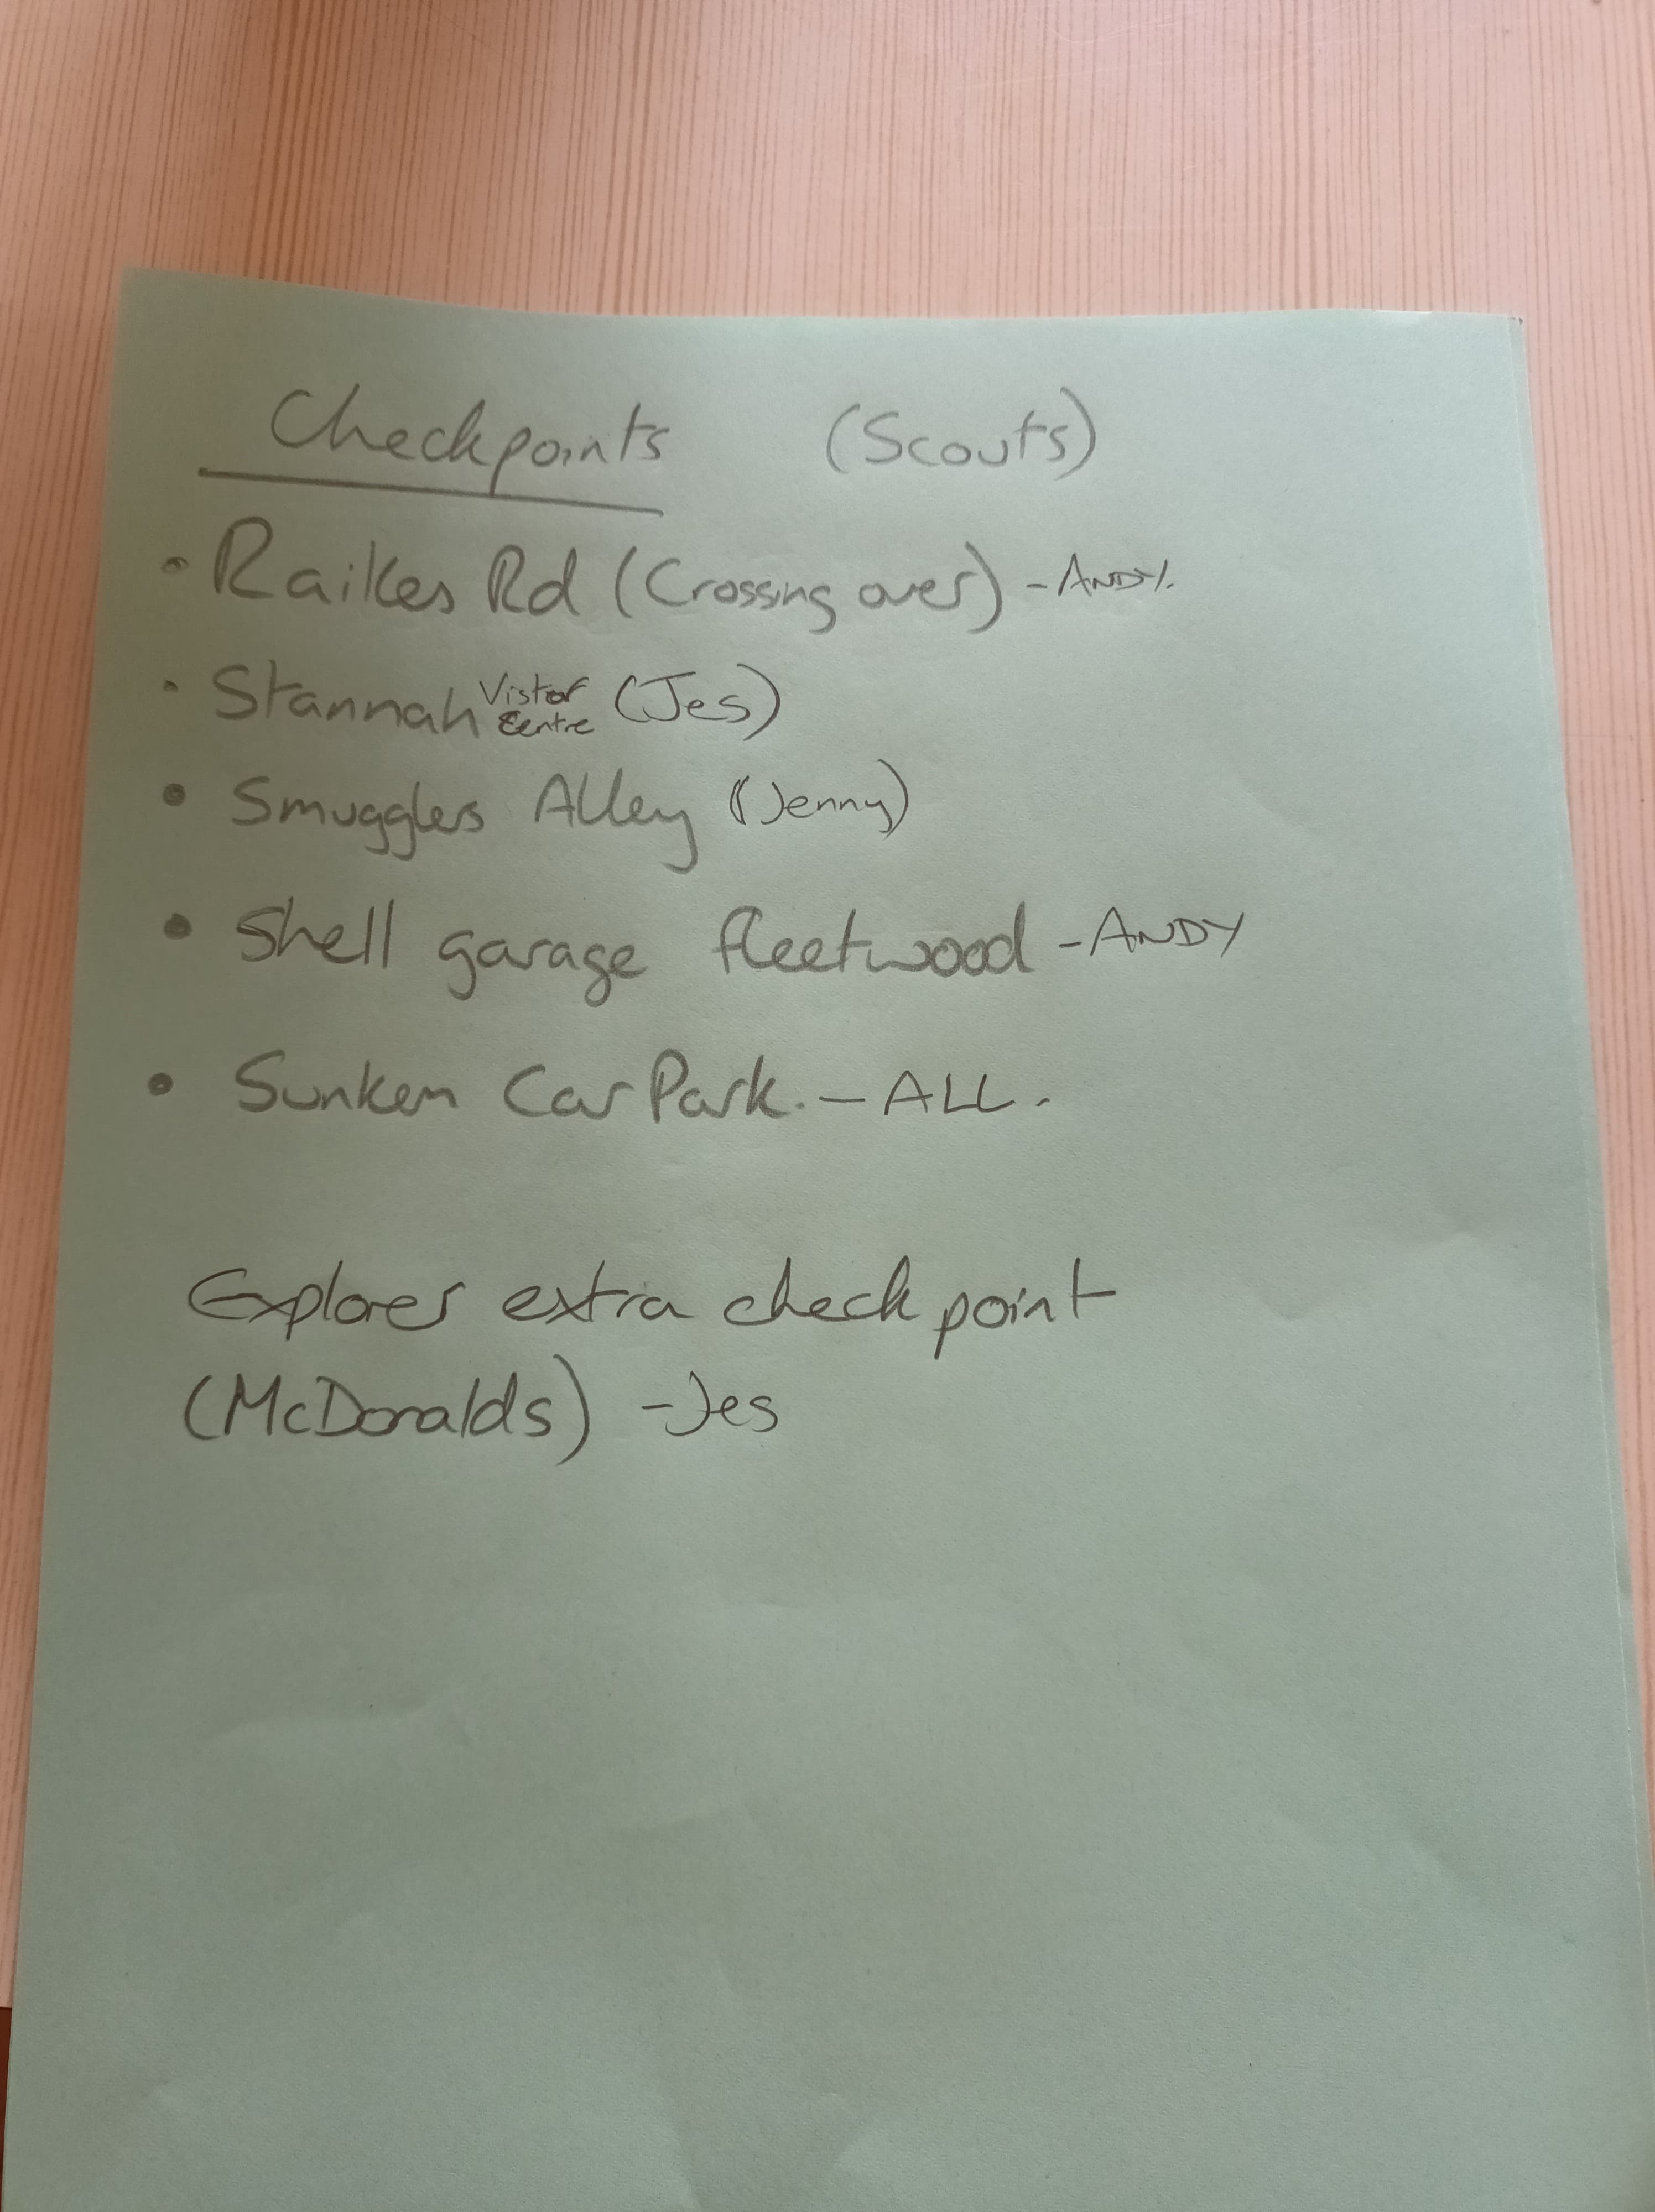 Checkpoints (Scouts)
• Raikes Rd (Crossing over) - ANDY.
• Stannah Vistor Centre (Jes)
• Smugglers Alley (Jenny)
• Shell garage fleetwood - ANDY
• Sunken Car Park. - ALL.
Explorer extra checkpoint
(McDonalds) - Jes